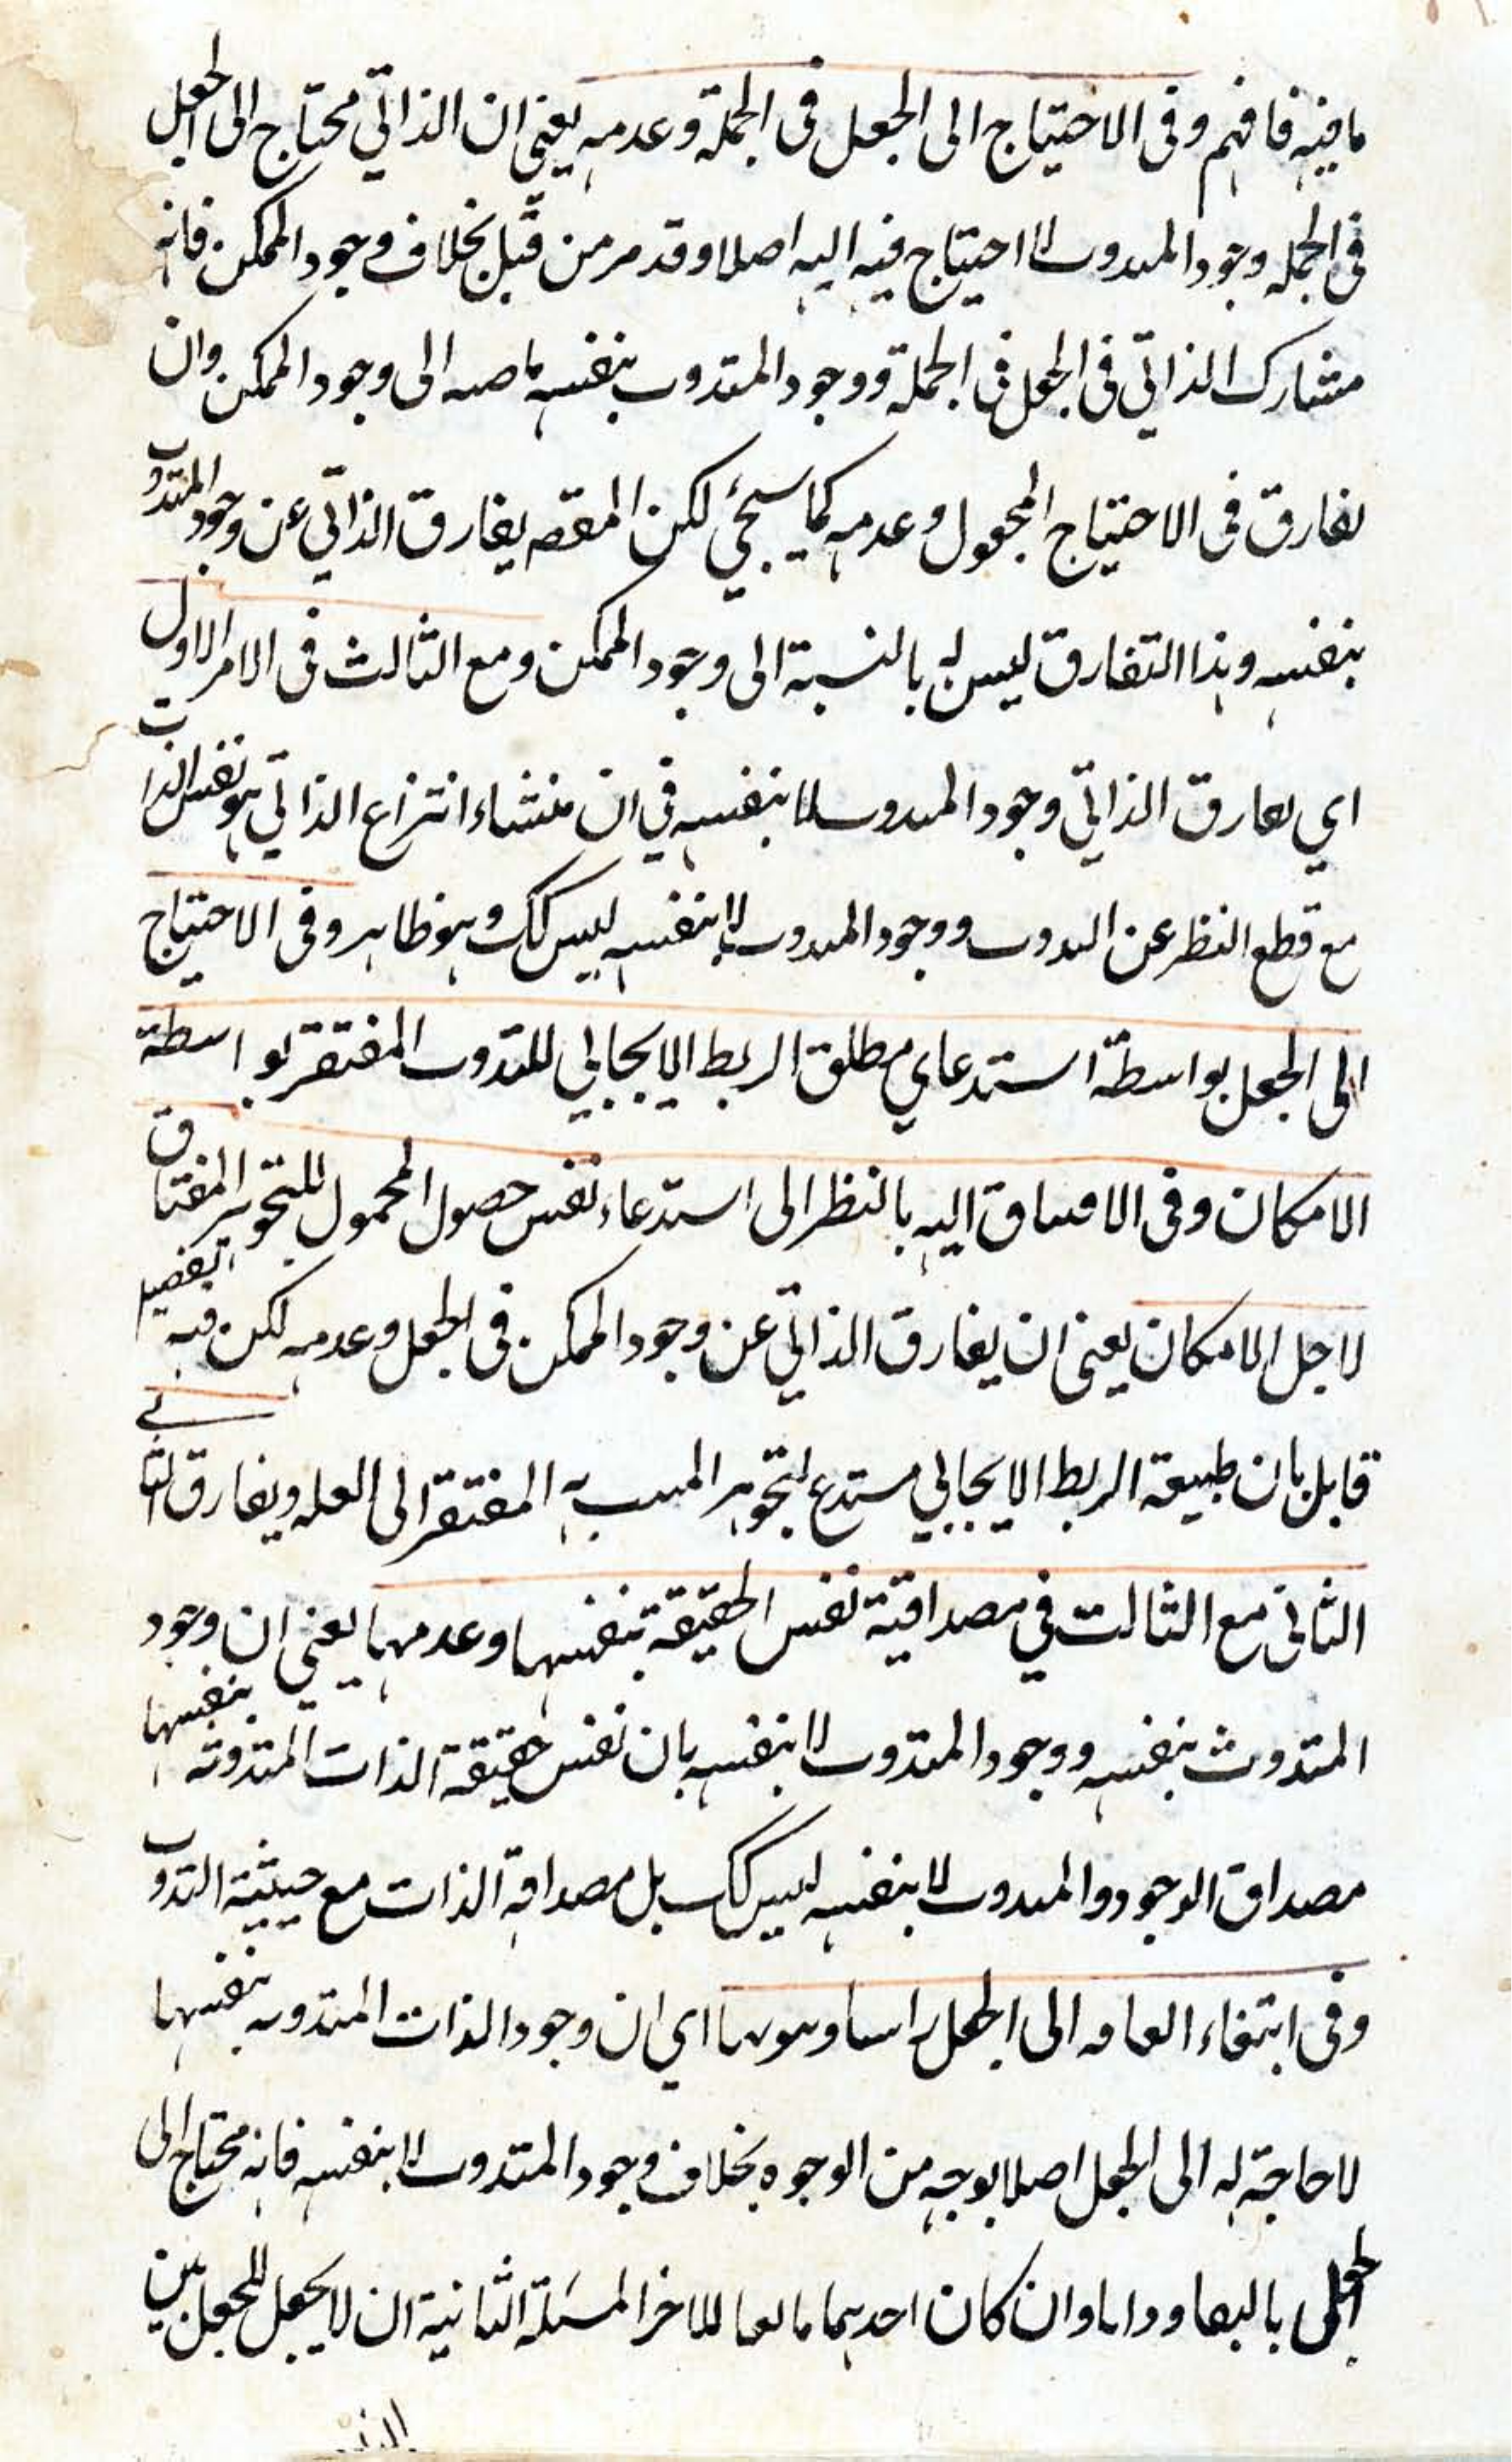 ما فيه فافهم وفى الاحتياج الى الجعل فى الجملة وعدمه يعنى ان الذاتي محتاج الى الجعل
فى الجمله وجود المتذوت لا احتياج فيه اليه اصلا وقد مر من قبل بخلاف وجود الممكن فانه
مشارك الذاتي فى الجعل فى الجملة ووجود المتذوت بنفسه الى وجود الممكن وان
يفارق فى الاحتياج المجعول وعدمه كما سيجئ لكن المقصه يفارق الذاتي عن وجود المتذوت
بنفسه وهذا التفارق ليس له بالنسبة الى وجود الممكن ومع الثالث فى الامر الاول
اي يفارق الذاتي وجود المتذوت لا بنفسه في ان منشاء انتزاع الذاتي هو نفس الذات
مع قطع النظر عن التذوت ووجود المتذوت لا بنفسه ليس كك وهو ظاهر وفى الاحتياج
الى الجعل بواسطة استدعاي مطلق الربط الايجابي للتذوت المفتقر بواسطة
الامكان وفى الافتياق اليه بالنظر الى استدعاء نفس حصول المحمول للتجوهر المفتاق
لاجل الامكان يعنى ان يفارق الذاتي عن وجود الممكن فى الجعل وعدمه لكن فيه التفصيل
قابل بان طبيعة الربط الايجابي مستدع لتجوهر المفتقر الى العله ويفارق الثانى
الثانى مع الثالث في مصداقية نفس الحقيقة بنفسها وعدمها يعني ان وجود
المتذوت بنفسه ووجود المتذوت لا بنفسه بان نفس حقيقة الذات المتذوتة بنفسها
مصداق الوجود والمتذوت لا بنفسه ليس كك بل مصداقه الذات مع حيثية التذوت
وفى انتفاء الفاقه الى الجعل راسا اي ان وجود الذات المتذوته بنفسها
لا حاجة له الى الجعل اصلا بوجه من الوجوه بخلاف وجود المتذوت لا بنفسه فانه محتاج الى
الجعل وان كان احدهما للاخر المسئلة الثانية ان لا يجعل للجعل بين